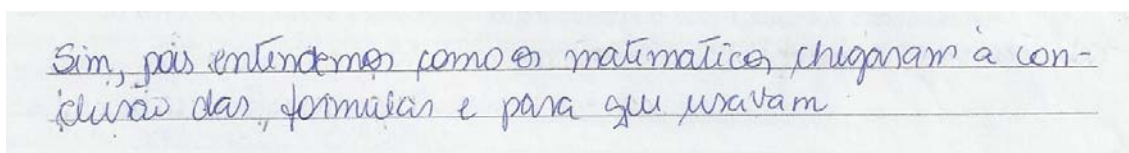 Sim, pois entendemos como os matimaticos chegaram à con-
clusão das, formulas e para que usavam